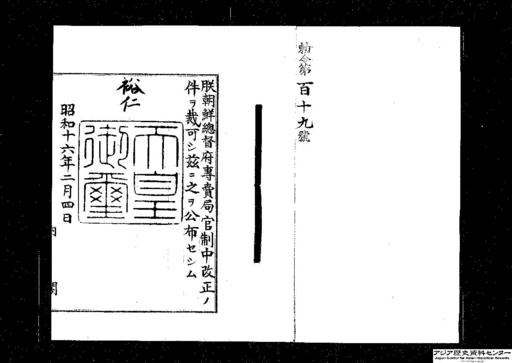 勅令第百十九號
朕朝鮮總督府專賣局官制中改正ノ
件ヲ裁可シ茲ニ之ヲ公布セシム
裕仁
天皇
御璽
昭和十六年二月四日
内閣
アジア歴史資料センター
Japan Center for Asian Historical Records